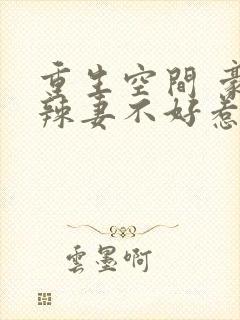 重生空間 豪
辣妻不好惹
雲墨啊